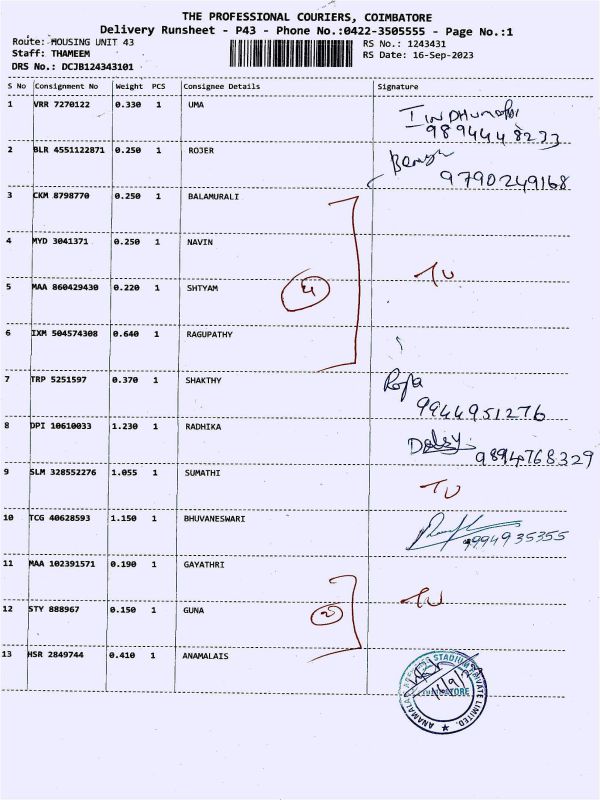 THE PROFESSIONAL COURIERS, COIMBATORE
Delivery Runsheet - P43 - Phone No.:0422-3505555 - Page No.:1
Route: HOUSING UNIT 43 RS No.: 1243431
Staff: THAMEEM RS Date: 16-Sep-2023
DRS No.: DCJB124343101
S No Consignment No Weight PCS Consignee Details Signature
1 VRR 7270122 0.330 1 UMA
9894448233
2 BLR 4551122871 0.250 1 ROJER
9790249168
3 CKM 8798770 0.250 1 BALAMURALI
4 MYD 3041371 0.250 1 NAVIN
5 MAA 860429430 0.220 1 SHTYAM 4
6 IXM 504574308 0.640 1 RAGUPATHY
7 TRP 5251597 0.370 1 SHAKTHY
9944951276
8 DPI 10610033 1.230 1 RADHIKA
9894768329
9 SLM 328552276 1.055 1 SUMATHI
10 TCG 40628593 1.150 1 BHUVANESWARI
9994935355
11 MAA 102391571 0.190 1 GAYATHRI
12 STY 888967 0.150 1 GUNA 2
13 HSR 2849744 0.410 1 ANAMALAIS
STADIUM PRIVATE LIMITED.